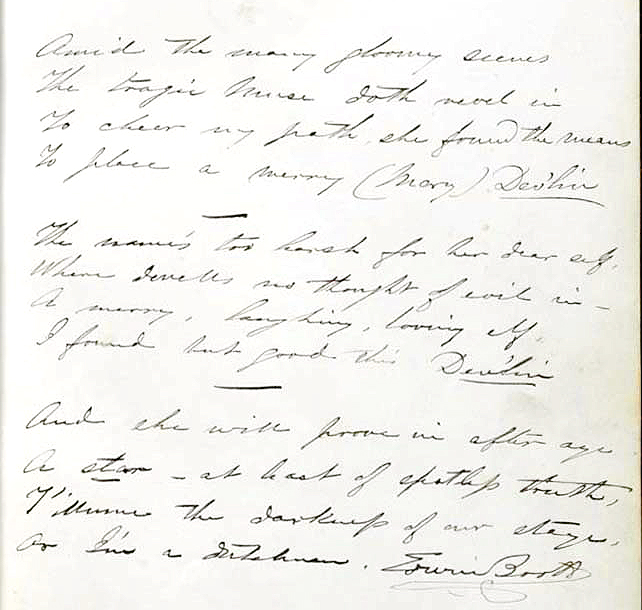 Amid the many gloomy scenes
The tragic Muse doth revel in
To cheer my path, she found the means
To place a merry (Mary) Dev'lin
The name's too harsh for her dear self,
Where dwells no thought of evil in –
A merry, laughing, loving elf,
I found but good this Dev'lin
And she will prove in after age
A star – at least of spotless truth,
T'illume the darkness of our stage,
Or I'm a dutchman. Edwin Booth